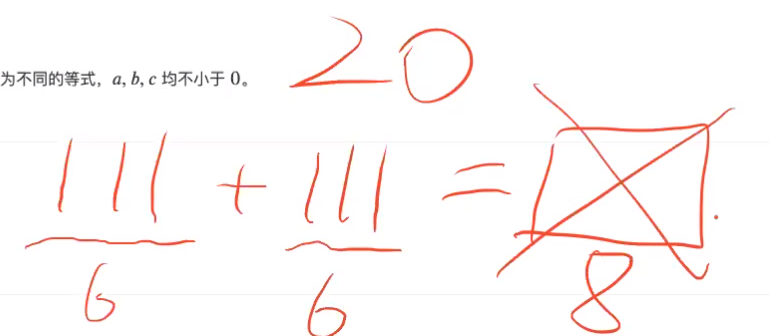 为不同的等式，a, b, c 均不小于 0。 20
111 + 111 =
6 6 8